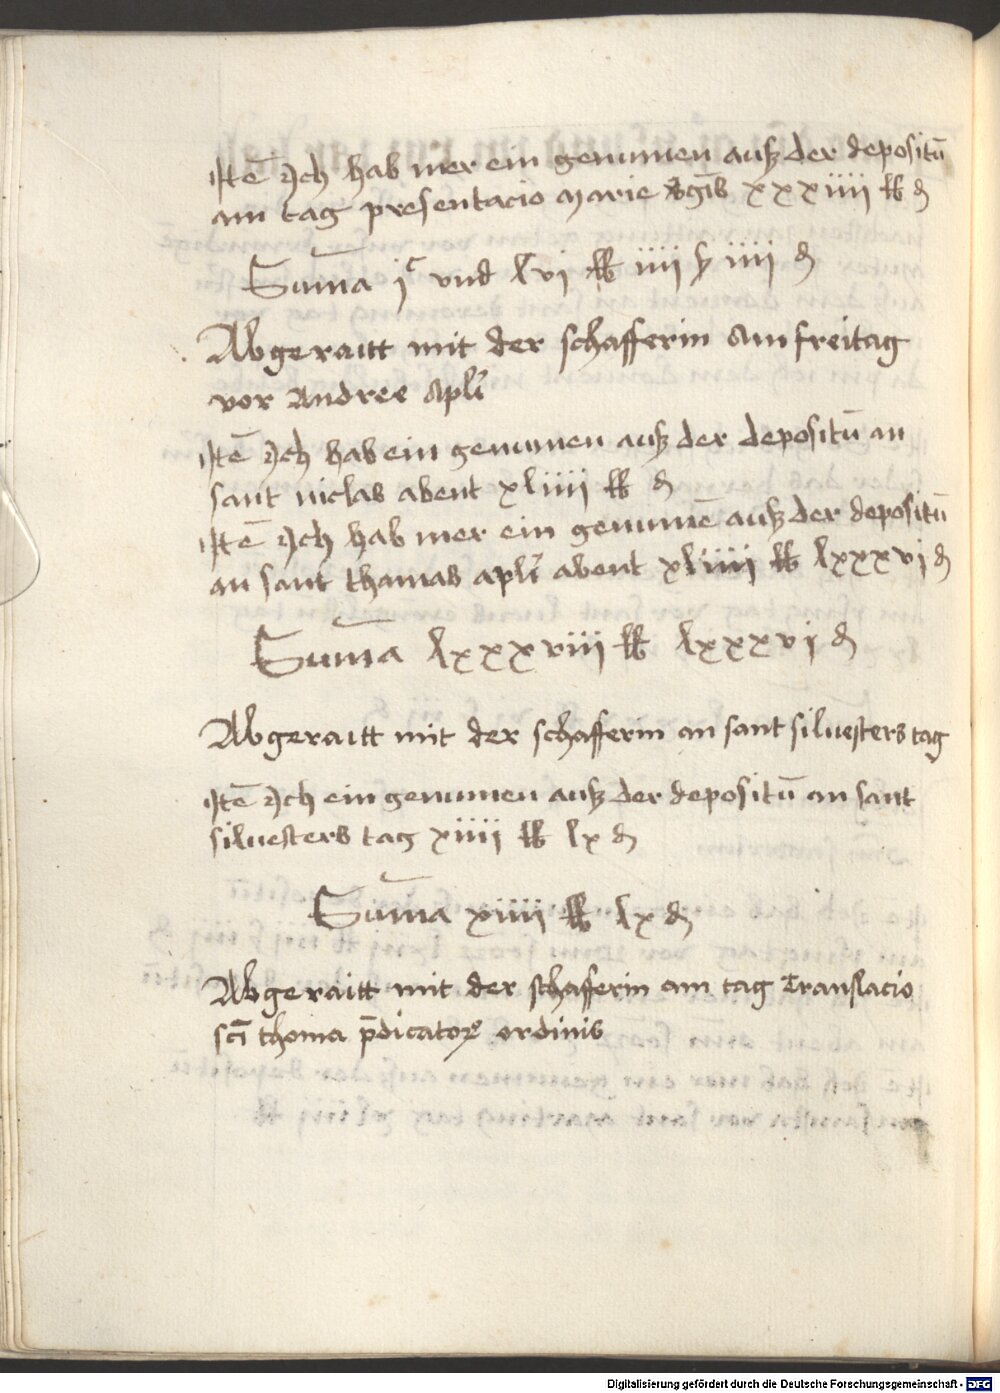 Itē Ich hab mer ein genumen auß der depositū
am tag presentacio marie v̄gīs xxxiiii ℔ ₰
Sum̄a jᶜ vnd lvj ℔ iiii ß iiii ₰
Abgeraitt mit der schafferin am freitag
vor Andree apl̄i
Itē Ich hab ein genumen auß der depositū an
sant niclas abent xliiii ℔ ₰
Itē Ich hab mer ein genumē auß der depositū
an sant thamas apl̄i abent xliiii ℔ lxxxvj ₰
Sum̄a lxxxviii ℔ lxxxvj ₰
Abgeraitt mit der schafferin an sant siluesters tag
Itē Ich ein genumen auß der depositū an sant
siluesters tag xiiii ℔ lx ₰
Sum̄a xiiii ℔ lx ₰
Abgeraitt mit der schafferin am tag Translacio
sc̄i thoma p̄dicatoꝝ ordinis
Digitalisierung gefördert durch die Deutsche Forschungsgemeinschaft - DFG